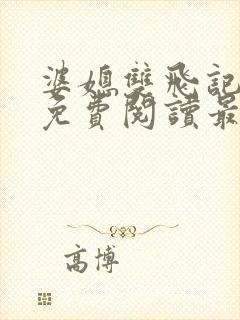 婆媳雙飛記
免費閱讀最
高博